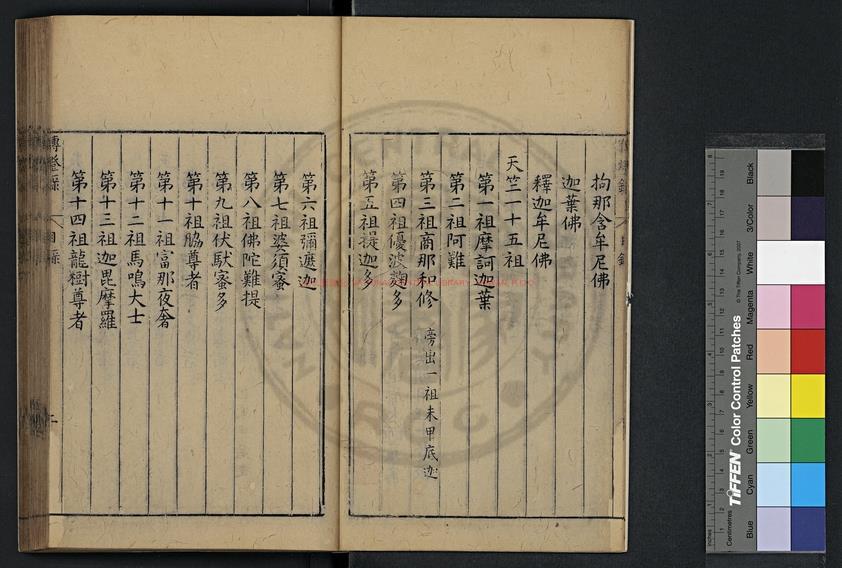 拘那含牟尼佛
迦葉佛
釋迦牟尼佛
天竺一十五祖
第一祖摩訶迦葉
第二祖阿難
第三祖商那和修 旁出一祖末甲底迦
第四祖優波麴多
第五祖提迦多
第六祖彌遮迦
第七祖婆須蜜
第八祖佛陀難提
第九祖伏馱蜜多
第十祖脇尊者
第十一祖富那夜奢
第十二祖馬鳴大士
第十三祖迦毘摩羅
第十四祖龍樹尊者
傳燈錄 目錄 二
Black
3/Color
White
Magenta
Red
Yellow
Green
Cyan
Blue
© The Tiffen Company, 2007
TIFFEN Color Control Patches
Centimetres
Inches